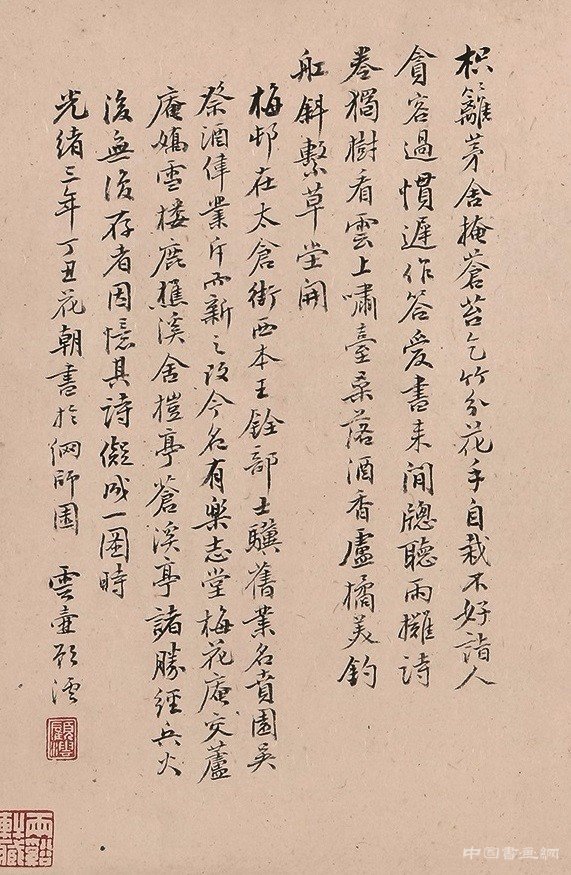 枳籬茅舍掩蒼苔乞竹分花手自栽不好詣人
貪客過慣遲作答愛書来閒牕聽雨攤詩
卷獨樹看雲上嘯臺桑落酒香盧橘美釣
舡斜繫草堂開
梅邨在太倉街西本王銓部士驥舊業名賁園吳
祭酒偉業斥而新之改今名有樂志堂梅花庵交蘆
庵嬌雪樓鹿樵溪舍榿亭蒼溪亭諸勝經兵火
後無復存者因憶其詩儗成一圖時
光緒三年丁丑花朝書於網師園 雲壺顧澐
顧澐
中国書画網